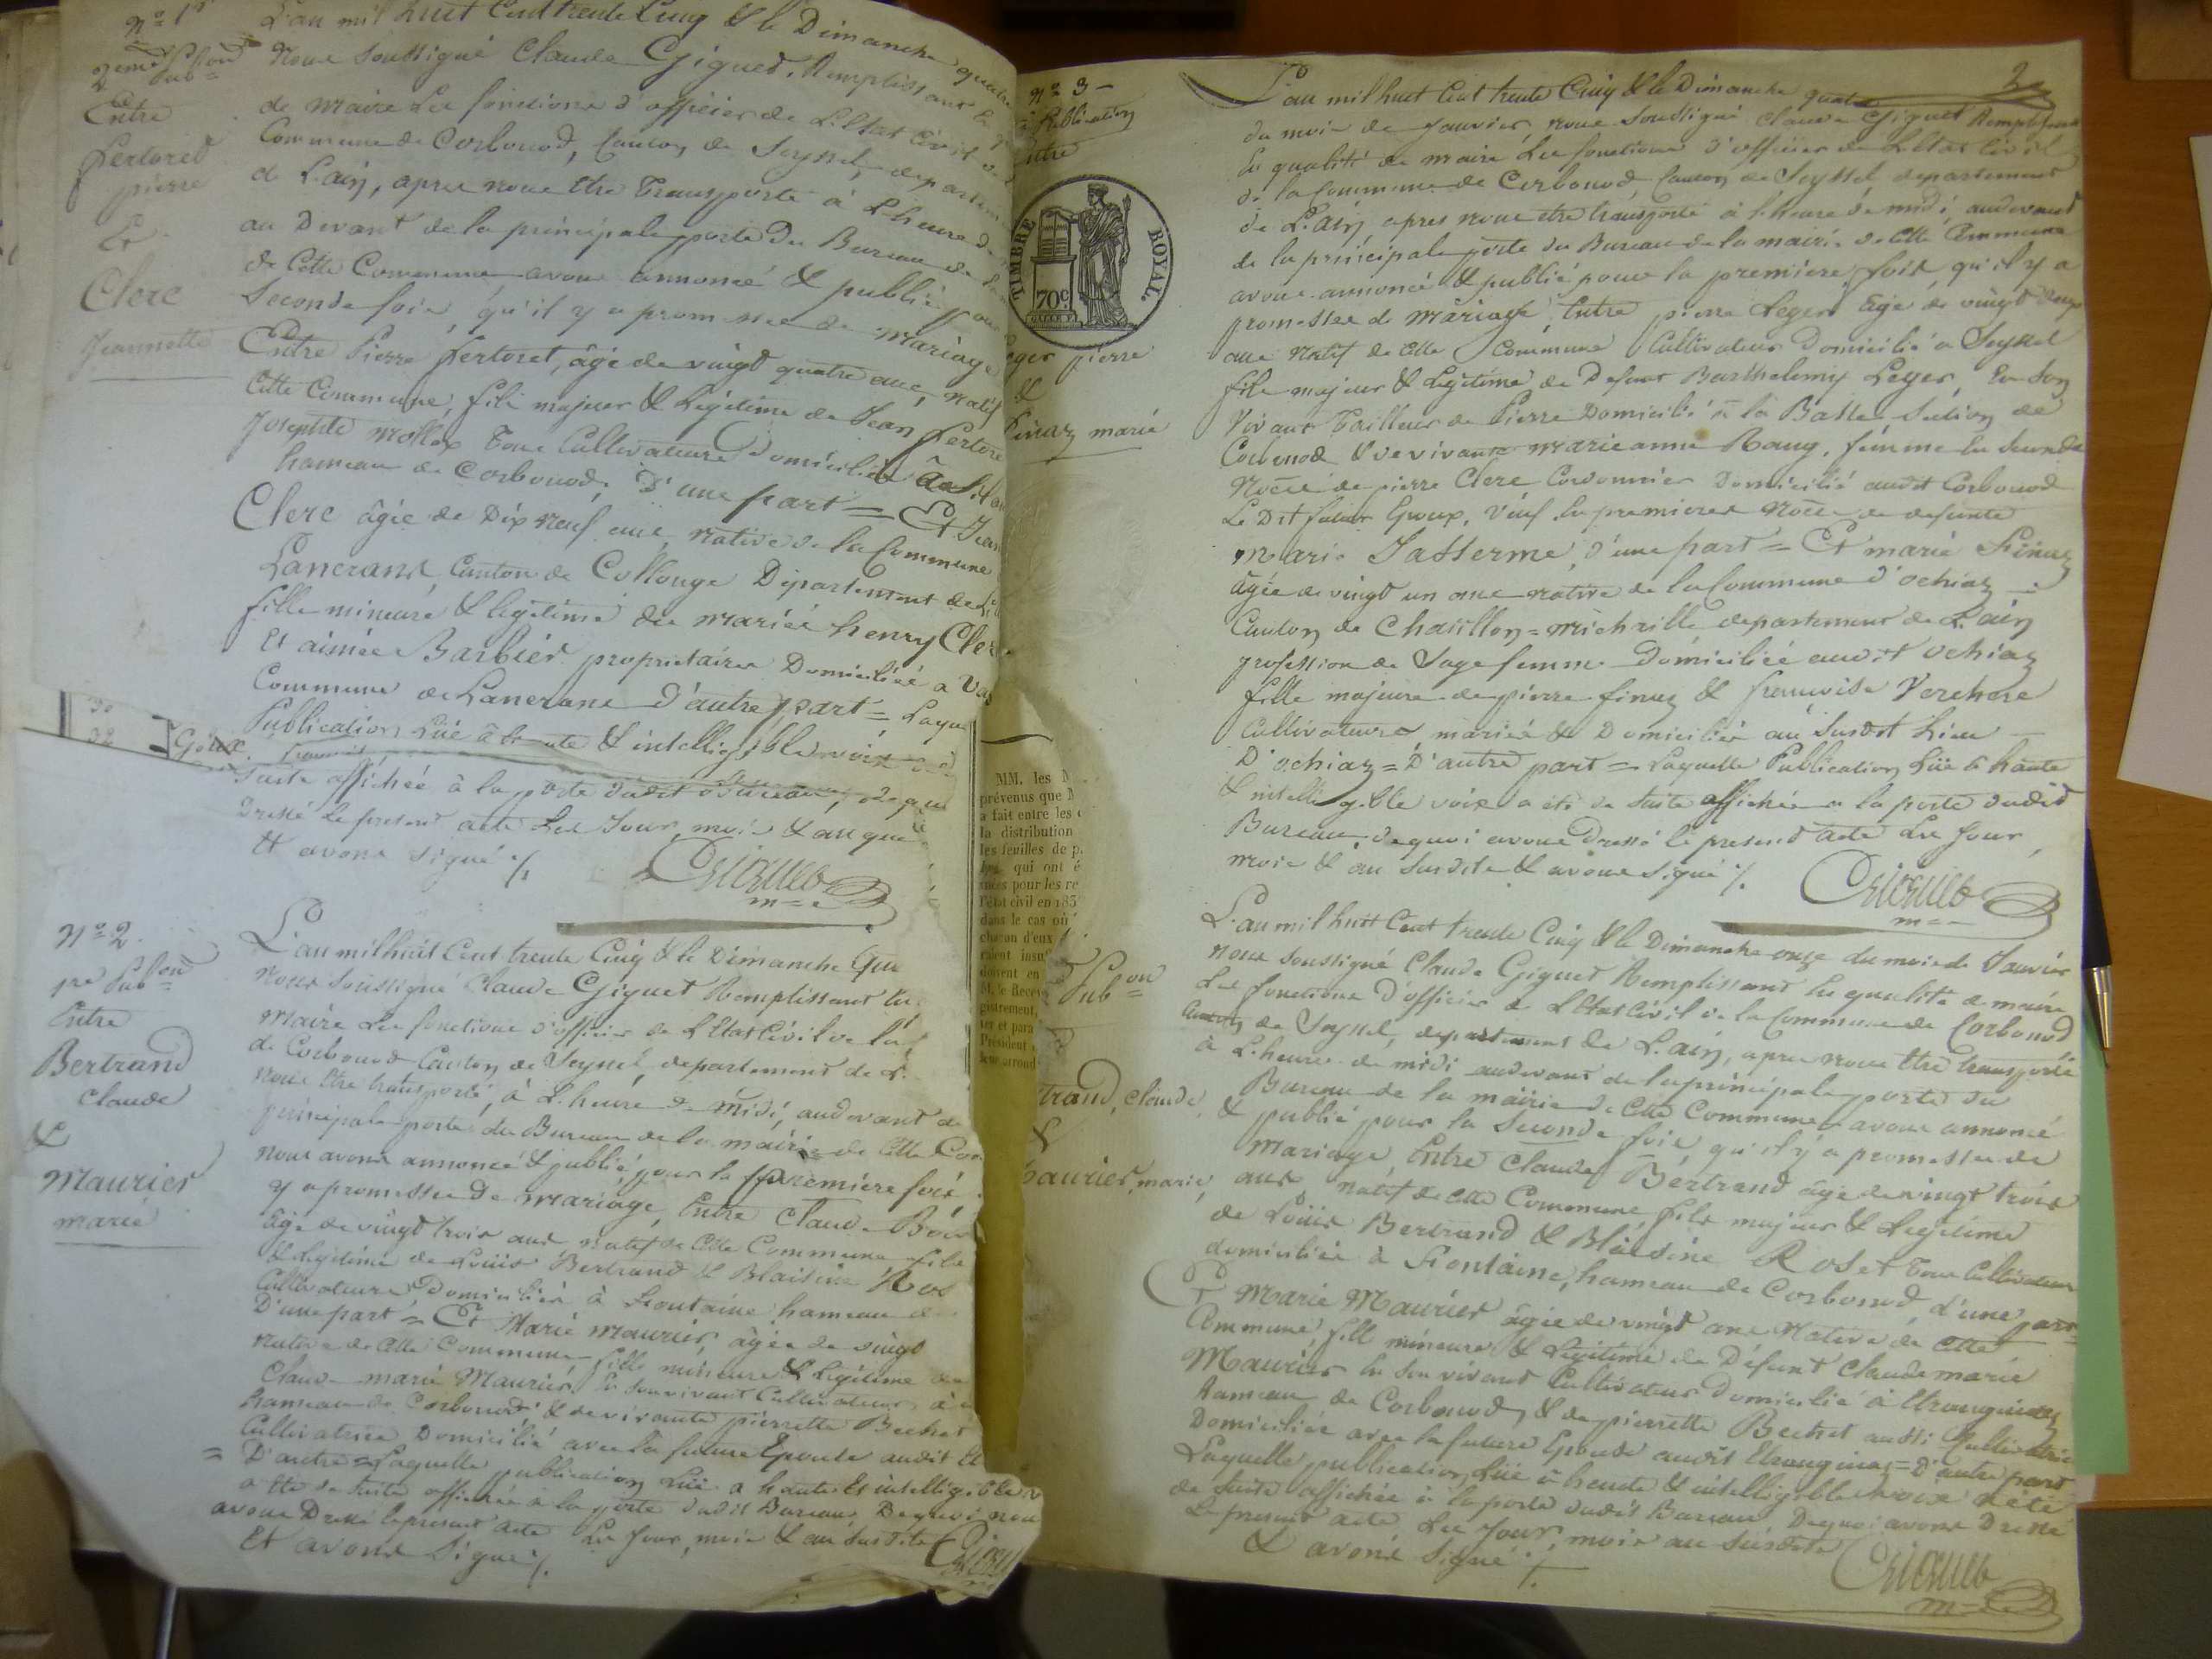 nº 1er
2eme Pubon
Entre
fertoret
pierre
Et
Clerc
Jeannette
L'an mil huit Cent trente Cinq & le Dimanche quatre
Nous soussigné Claude Giguet, Remplissant la
de maire Les fonctions d'officier de L'Etat Civil
Commune de Corbonod, Canton de Seyssel, departem
de L'ain, apres nous etre Transporté à L'heure de
au Devant de la principale porte du Bureau de la
de Cette Commune avons annoncé & publié pour
Seconde fois, qu'il y a promesse de mariage
Entre Pierre fertoret, âgé de vingt quatre ans, natif
Cette Commune, fils majeur & Légitime de Jean fertore
Josephte Mollex Tous Cultivateurs domiciliés
hameau de Corbonod, D'une part = Et Jean
Clerc âgée de Dix neuf ans, native de la Commune
Lancrans Canton de Collonge Département de
fille mineure & légitime des mariés henry Cler
Et aimée Barbier propriétaires Domiciliés a
Commune de Lancrans D'autre part = Laque
Publication Lüe à haute & intelligible voix
suite affichée à la porte dudit Bureau, de qu
Dressé le present acte Les Jour, mois & an que
Et avons signé ./.
Giguet
nº 2
pre Pubon
Entre
Bertrand
Claude
&
Maurier
marie
L'an mil huit Cent trente Cinq & le Dimanche qua
nous soussigné Claude Giguet Remplissant
Maire Les fonctions d'officier de L'Etat Civil de la
de Corbonod Canton de Seyssel, departement de L
nous etre transporté, à L'heure de Midi, au devant de
principale porte du Bureau de la mairie de Cette Com
nous avons annoncé & publié, pour la premiere fois
y a promesse De mariage, Entre Claude
âgé de vingt trois ans natif de Cette Commune fils
& Légitime de Loüis Bertrand & Blaisine Ros
Cultivateurs Domiciliés à Fontaine hameau de
D'une part = Et Marie Maurier, âgée de vingt
native de Cette Commune, fille mineure & Légitime de
Claude marie Maurier, En son vivant Cultivateur, à
hameau de Corbonod & de vivante pierrette Bechet
Cultivatrice Domicilié avec la future Epouse audit
= D'autre = Laquelle publication Lüe a haute Et intelligible
a été de suite affichée à la porte dudit Bureau, De quoi nou
avons Dressé le present acte Les Jour, mois & an susdits
Et avons Signé ./.
30
32
Goux
MM. les
prévenus que
a fait entre les
la distribution
les feuilles de p.
qui ont é
pour les re
l'état civil en 183
dans le cas où
chacun d'eux
doivent en
M. le Recev
gistrement,
et para
Président
arrond
nº 3
Publication
Entre
TIMBRE ROYAL.
70c.
Leger pierre
&
Finaz marie
2
L'an mil huit Cent trente Cinq & le Dimanche quatre
du mois de Janvier, nous soussigné Claude Giguet Remplissant
la qualité de maire Les fonctions d'officier de L'Etat Civil
de la Commune de Corbonod, Canton de Seyssel departement
de L'ain apres nous etre transporté à l'heure de midi, au devant
de la principale porte du Bureau de la mairie de Cette Commune
avons annoncé & publié pour la premiere fois, qu'il y a
promesse de mariage, Entre pierre Leger âgé de vingt
ans natif de Cette Commune Cultivateur Domicilié a Seyssel
fils majeur & Légitime de Defunt Barthelemy Leger, En son
vivant Tailleur de Pierre Domicilié à la Basse section de
Corbonod & de vivante marie anne Ravy, femme En seconde
Noces de pierre Clerc Cordonnier Domicilié audit Corbonod
Le Dit futur Epoux, Veuf En premieres Noces de defunte
marie Jasserme, d'une part = Et marie Finaz
âgée de vingt un ans native de la Commune d'ochiaz
Canton de Chatillon = michaille departement de L'ain
profession de Sage femme Domiciliée audit ochiaz
fille majeure de pierre finaz & françoise Verchere
Cultivateurs mariés & Domiciliés au susdit Lieu
D'ochiaz = D'autre part = Laquelle Publication Lüe à haute
& intelligible voix a été de suite affichée a la porte dudit
Bureau, de quoi avons Dressé le present acte Les Jour
mois & an susdits & avons signé ./.
Giguet
Pubon
trand, Claude
&
Maurier, marie
L'an mil huit Cent trente Cinq & le Dimanche onze du mois de Janvier
nous soussigné Claude Giguet Remplissant la qualité de maire
Les fonctions D'officier de L'Etat Civil de la Commune de Corbonod
Canton de Seyssel, departement de L'ain, apres nous etre transporté
à L'heure de midi au devant de la principale porte du
Bureau de la mairie de Cette Commune avons annoncé
& publié pour la Seconde fois, qu'il y a promesse de
Mariage, Entre Claude Bertrand âgé de vingt trois
ans natif de Cette Commune fils majeur & Légitime
de Loüis Bertrand & Blaisine Roset Tous Cultivateurs
domiciliés à Fontaine, hameau de Corbonod, d'une part
Et Marie Maurier âgée de vingt ans Native de Cette
Commune fille mineure & Légitime de Défunt Claude marie
Maurier En son vivant Cultivateur Domicilié à Etranginaz
hameau de Corbonod, & de pierrette Bechet aussi Cultivatrice
Domiciliée avec la future Epouse audit Etranginaz = D'autre part
Laquelle publication Lüe à haute & intelligible voix a été
de suite affichée à la porte dudit Bureau De quoi avons Dressé
Le present acte Les Jour, mois an susdits
& avons signé ./.
Giguet